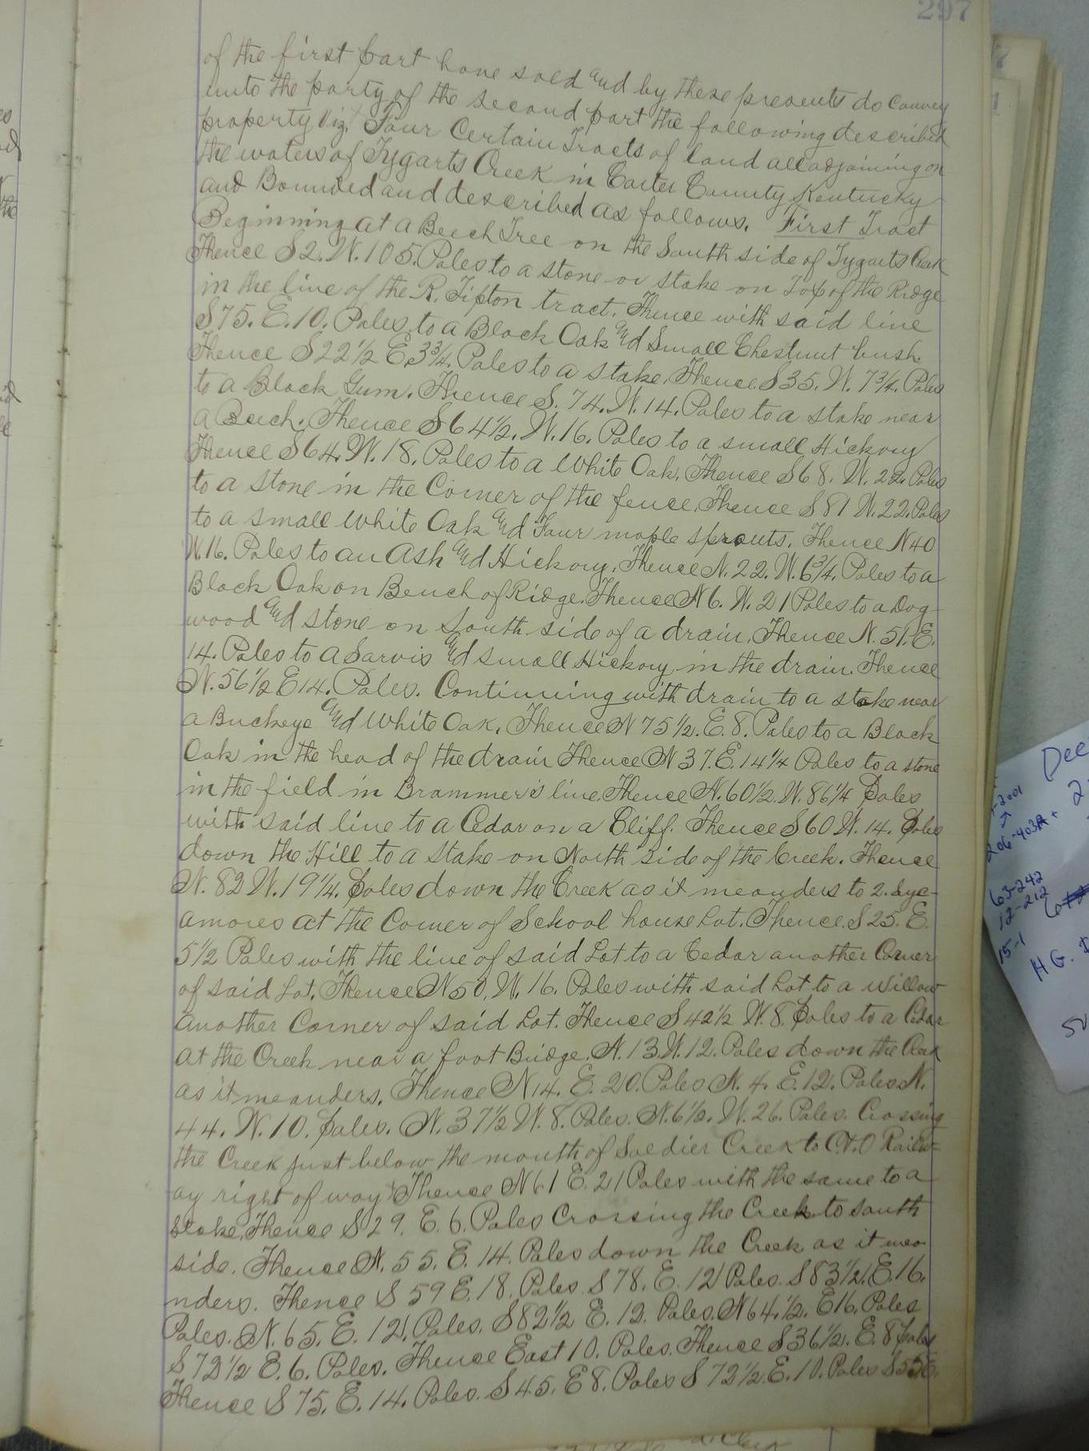 297
of the first part have sold and by these presents do Convey
unto the party of the second part the following described
property Viz, Four Certain Tracts of land all adjoining on
the waters of Tygarts Creek in Carter County Kentucky
and Bounded and described as follows. First Tract
Beginning at a Beech Tree on the South side of Tygarts Creek
Thence S 2. W. 105. Poles to a stone or stake on Top of the Ridge
in the line of the R. Tipton tract. Thence with said line
S 75. E. 10. Poles to a Black Oak and Small Chestnut bush
Thence S 22 1/2 E. 3 3/4. Poles to a stake, Thence S 35. W. 7 3/4. Poles
to a Black Gum. Thence S. 74. W. 14. Poles to a stake near
a Beech. Thence S 64 1/2. W. 16. Poles to a small Hickory
Thence S 64. W. 18. Poles to a White Oak. Thence S 68. W. 22. Poles
to a stone in the Corner of the fence, Thence S 81 W. 22. Poles
to a small White Oak and Four maple sprouts. Thence N 40
W. 16. Poles to an Ash and Hickory, Thence N. 22. W. 6 3/4. Poles to a
Black Oak on Bench of Ridge. Thence N 6. W. 21 Poles to a Dog-
wood and stone on South side of a drain, Thence N. 51. E.
14. Poles to a Sarvis and small Hickory in the drain. Thence
N. 56 1/2 E 14. Poles. Continuing with drain to a stake near
a Buckeye and White Oak, Thence N 75 1/2. E. 8. Poles to a Black
Oak in the head of the drain Thence N 37. E. 14 1/4 Poles to a stone
in the field in Brammer's line, Thence N. 60 1/2. W. 86 1/4 Poles
with said line to a Cedar on a Cliff. Thence S 60 W. 14. Poles
down the Hill to a stake on North side of the Creek. Thence
N. 82 W. 19 1/4. Poles down the Creek as it meanders to 2. Syc-
amores at the Corner of School house Lot. Thence S 25. E.
5 1/2 Poles with the line of said Lot to a Cedar another Corner
of said Lot, Thence N 50, W. 16. Poles with said Lot to a Willow
another Corner of said Lot. Thence S 42 1/2 W. 8. Poles to a Cedar
at the Creek near a foot Bridge, N. 13. W. 12. Poles down the Creek
as it meanders, Thence N 14. E. 20. Poles N. 4. E. 12. Poles N.
44. W. 10. Poles. N. 37 1/2 W. 8. Poles. N. 6 1/2. W. 26. Poles. Crossing
the Creek just below the mouth of Soldier Creek to C. & O Railw-
ay right of way Thence N 61 E. 21 Poles with the same to a
stake, Thence S 29. E. 6. Poles Crossing the Creek to South
side. Thence N. 55. E. 14. Poles down the Creek as it mea-
nders. Thence S 59 E. 18. Poles S 78. E. 12 Poles. S 83 1/2. E. 16.
Poles. N. 65. E. 12. Poles. S 82 1/2 E. 12. Poles. N 64. 1/2. E 16. Poles
S 72 1/2 E. 6. Poles. Thence East 10. Poles. Thence S 36 1/2. E. 8 Poles
Thence S 75. E. 14. Poles. S 45. E 8. Poles S 72 1/2. E. 10. Poles S 55 E.
Dee
206-403A
63-242
12-212
15-1
H.G.